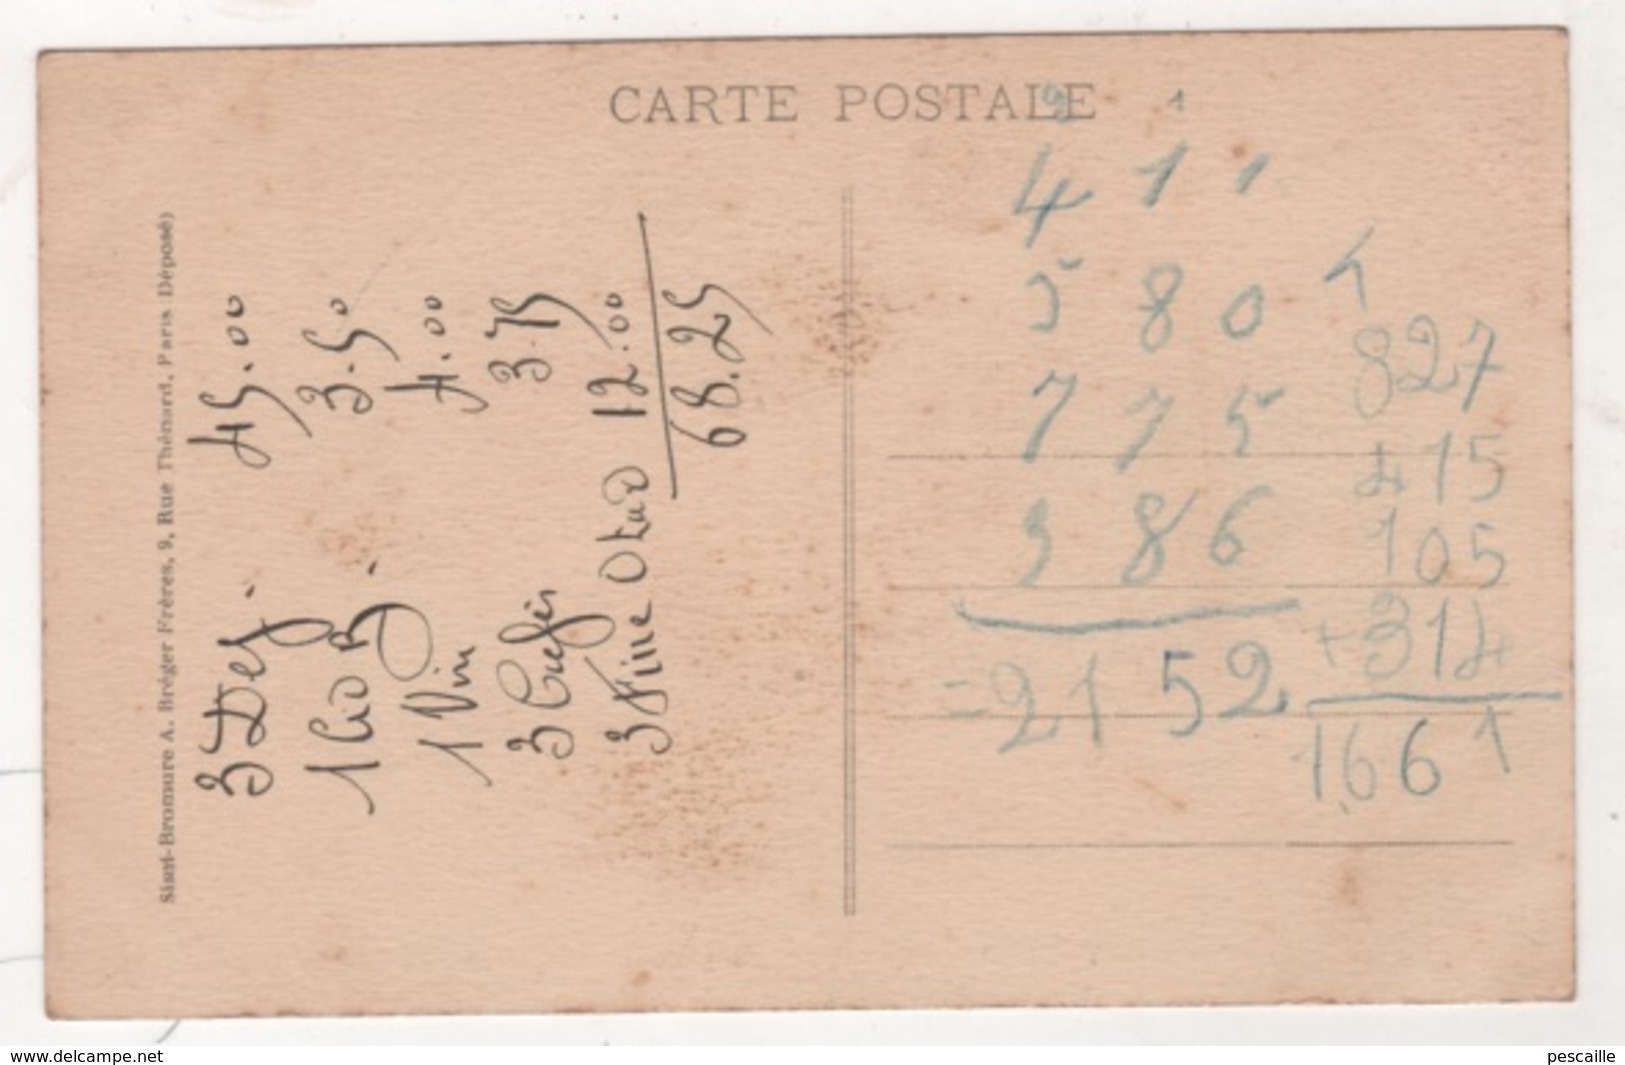 CARTE POSTALE
Simi-Bromure A. Bréger Frères, 9, Rue Thénard, Paris Déposé)
3 Dej. 45.00
1 3.50
1 Vin 4.00
3 Cafés 3.75
3 Fine Otard 12.00
68.25
2 1
4 1 1
5 8 0
7 7 5
3 8 6
= 2152
1
827
415
105
+ 314
1661
www.delcampe.net
pescaille